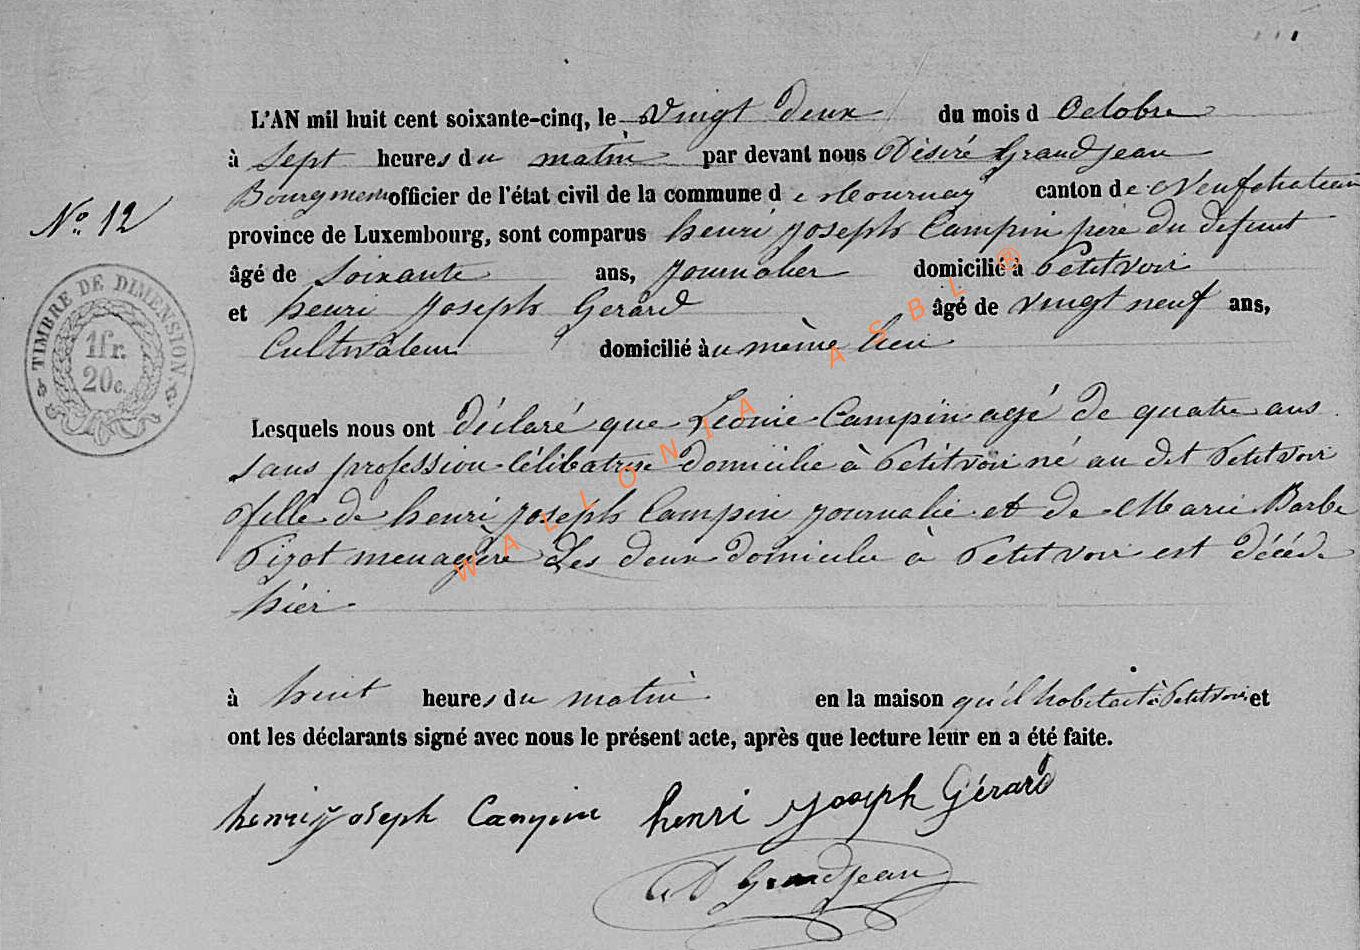 L'AN mil huit cent soixante-cinq, le Vingt deux du mois d Octobre
à Sept heures du matin par devant nous Désiré Grandjean
officier de l'état civil de la commune de canton de Neufchateau
N° 12
province de Luxembourg, sont comparus henri joseph Campin père du défunt
âgé de Soixante ans, journalier domicilié à Petitvoir
et henri joseph Gerard âgé de vingt neuf ans,
Cultivateur domicilié à u même lieu
TIMBRE DE DIMENSION
1fr.
20c.
Lesquels nous ont déclaré que Léonie Campin agé de quatre ans
sans profession célibataire domicilié à Petitvoir né au dit Petitvoir
fille de henri joseph Campin journalié et de Marie Barbe
Pizot menagère Les deux domicilié à Petitvoir est décédé
hier
à huit heures du matin en la maison qu'il habitait à Petitvoir et
ont les déclarants signé avec nous le présent acte, après que lecture leur en a été faite.
henri joseph Campin henri joseph Gérard
D Grandjean
WALLONIA ASBL ®